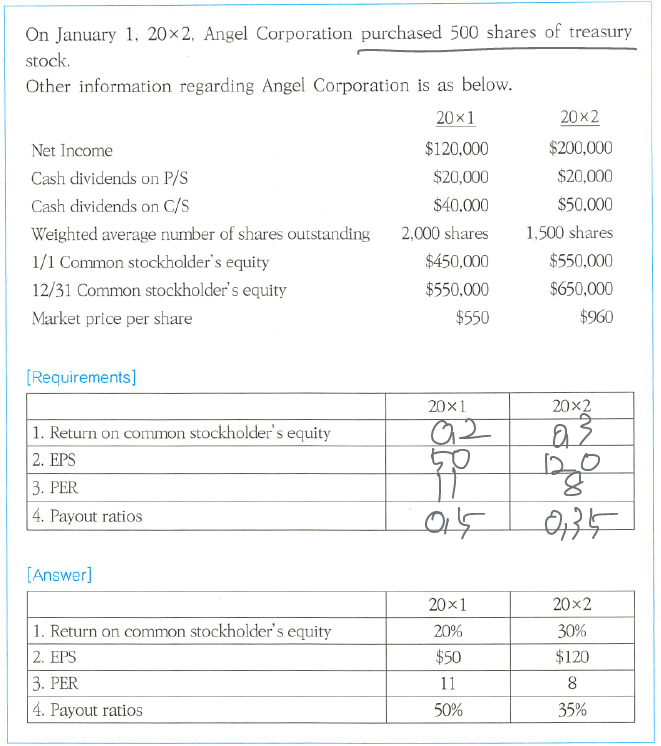 On January 1, 20×2, Angel Corporation purchased 500 shares of treasury
stock.
Other information regarding Angel Corporation is as below.
20×1 20×2
Net Income $120,000 $200,000
Cash dividends on P/S $20,000 $20,000
Cash dividends on C/S $40,000 $50,000
Weighted average number of shares outstanding 2,000 shares 1,500 shares
1/1 Common stockholder's equity $450,000 $550,000
12/31 Common stockholder's equity $550,000 $650,000
Market price per share $550 $960
[Requirements]
20×1 20×2
1. Return on common stockholder's equity 0.2 0.3
2. EPS 50 120
3. PER 11 8
4. Payout ratios 0.5 0.35
[Answer]
20×1 20×2
1. Return on common stockholder's equity 20% 30%
2. EPS $50 $120
3. PER 11 8
4. Payout ratios 50% 35%